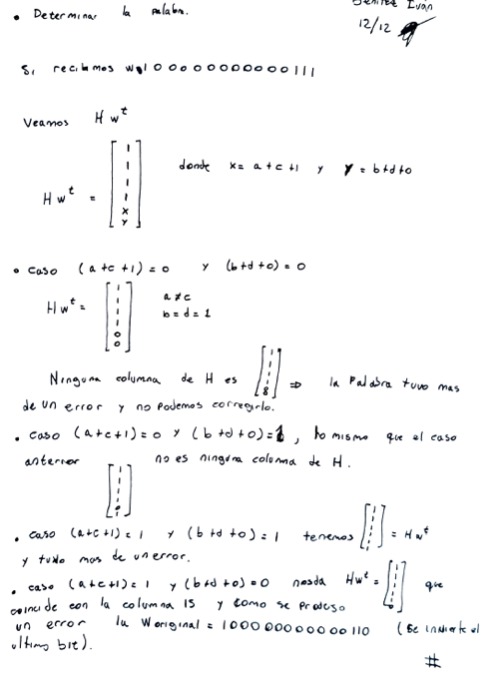 • Determinar la palabra.
Benitez Iván
12/12
Si recibimos w=100000000000111
Veamos H w^t
H w^t = [1 1 1 1 x y] donde x = a+c+1 y y = b+d+0
• caso (a+c+1)=0 y (b+d+0)=0
Hw^t = [1 1 1 1 0 0] a≠c
b=d=1
Ninguna columna de H es [1 1 1 1 0 0] ⇒ la palabra tuvo mas
de un error y no podemos corregirlo.
• caso (a+c+1)=0 y (b+d+0)=1, lo mismo que el caso
anterior no es ninguna columna de H.
• caso (a+c+1)=1 y (b+d+0)=1 tenemos = Hw^t
y tuvo mas de un error.
• caso (a+c+1)=1 y (b+d+0)=0 nos da Hw^t = que
coincide con la columna 15 y como se produjo
un error la W original = 100000000000110 (Se invierte el
ultimo bit).
#